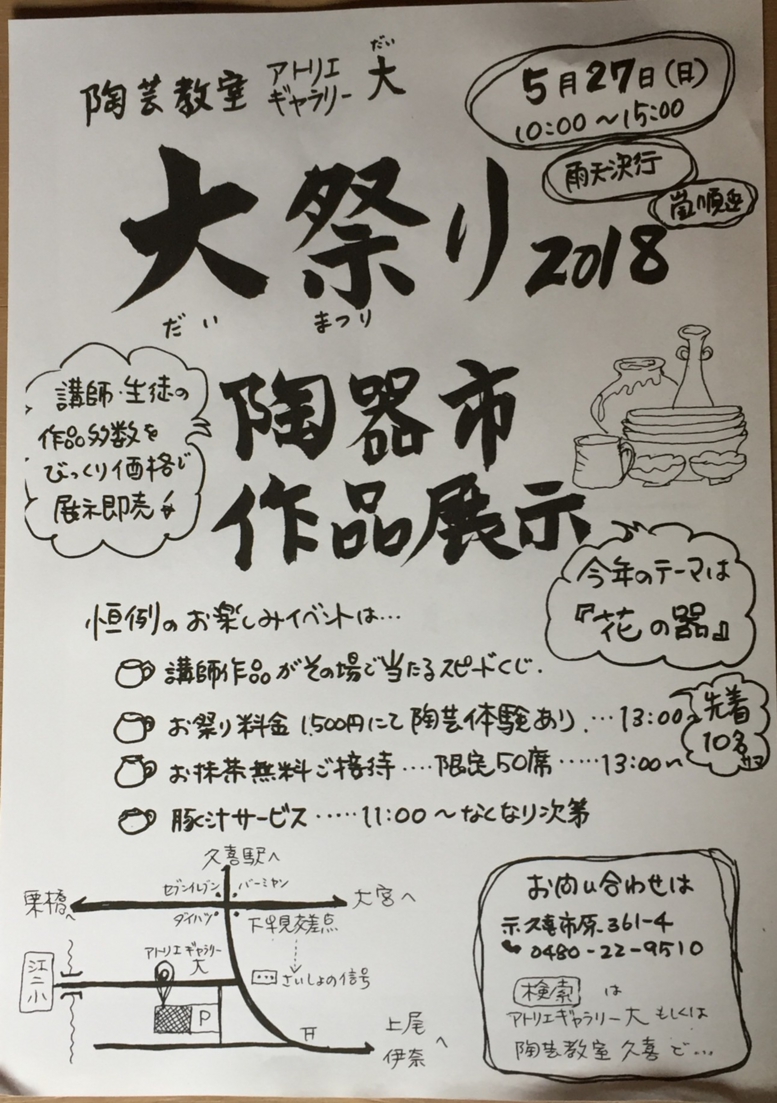 陶芸教室 アトリエ ギャラリー 大
だい
5月27日(日)
10:00〜15:00
雨天決行
嵐順延
大祭り2018
だい まつり
講師・生徒の
作品多数を
びっくり価格で
展示即売
陶器市
作品展示
今年のテーマは
『花の器』
恒例のお楽しみイベントは…
講師作品がその場で当たるスピードくじ.
お祭り料金1,500円にて陶芸体験あり.…13:00〜
先着
10名サマ
お抹茶無料ご接待‥‥限定50席‥‥‥13:00〜
豚汁サービス‥‥‥11:00〜なくなり次第
久喜駅へ
セブンイレブン
バーミヤン
栗橋へ
大宮へ
ダイハツ
下早見交差点
アトリエギャラリー
大
江二小
さいしょの信号
P
上尾
伊奈へ
お問い合わせは
久喜市原361-4
0480-22-9510
検索 は
アトリエギャラリー大 もしくは
陶芸教室 久喜 で…